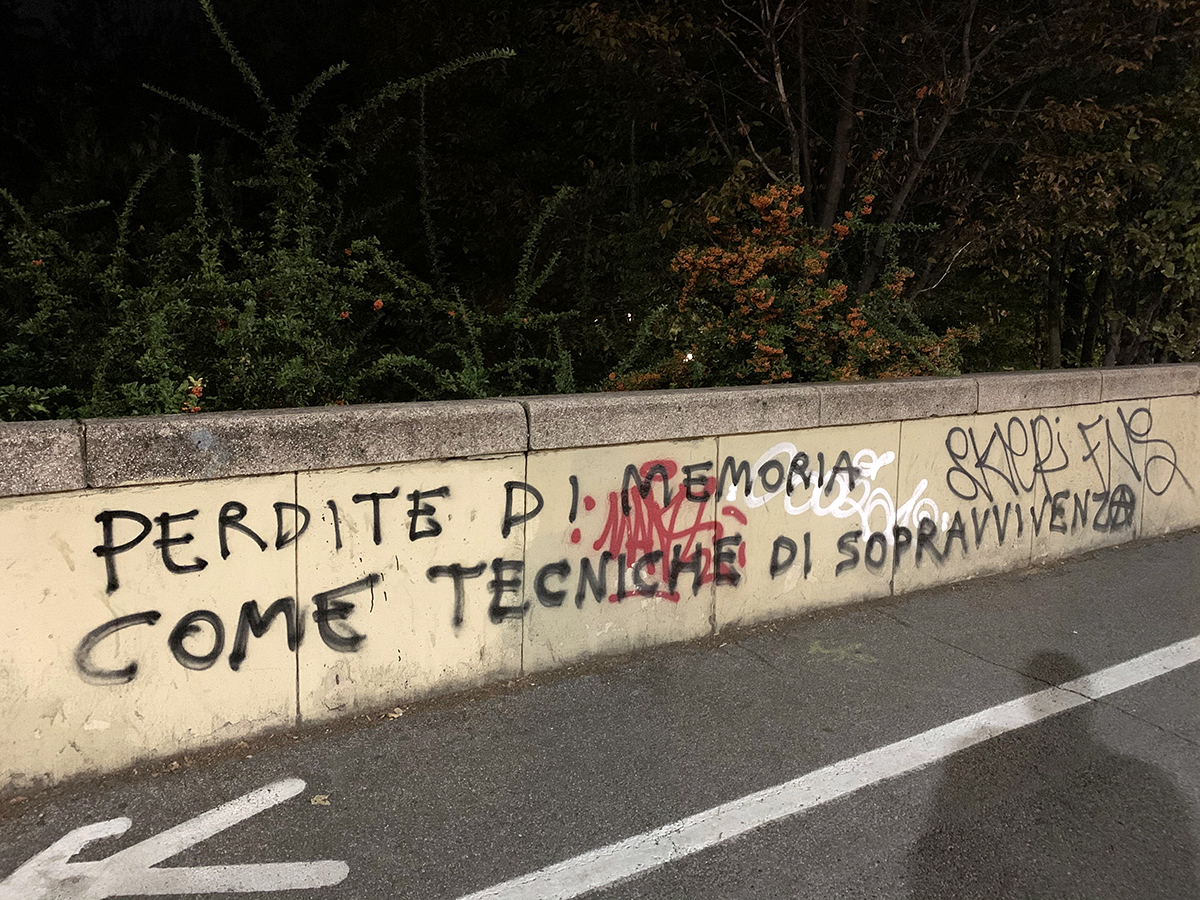 PERDITE DI MEMORIA
COME TECNICHE DI SOPRAVVIVENZA